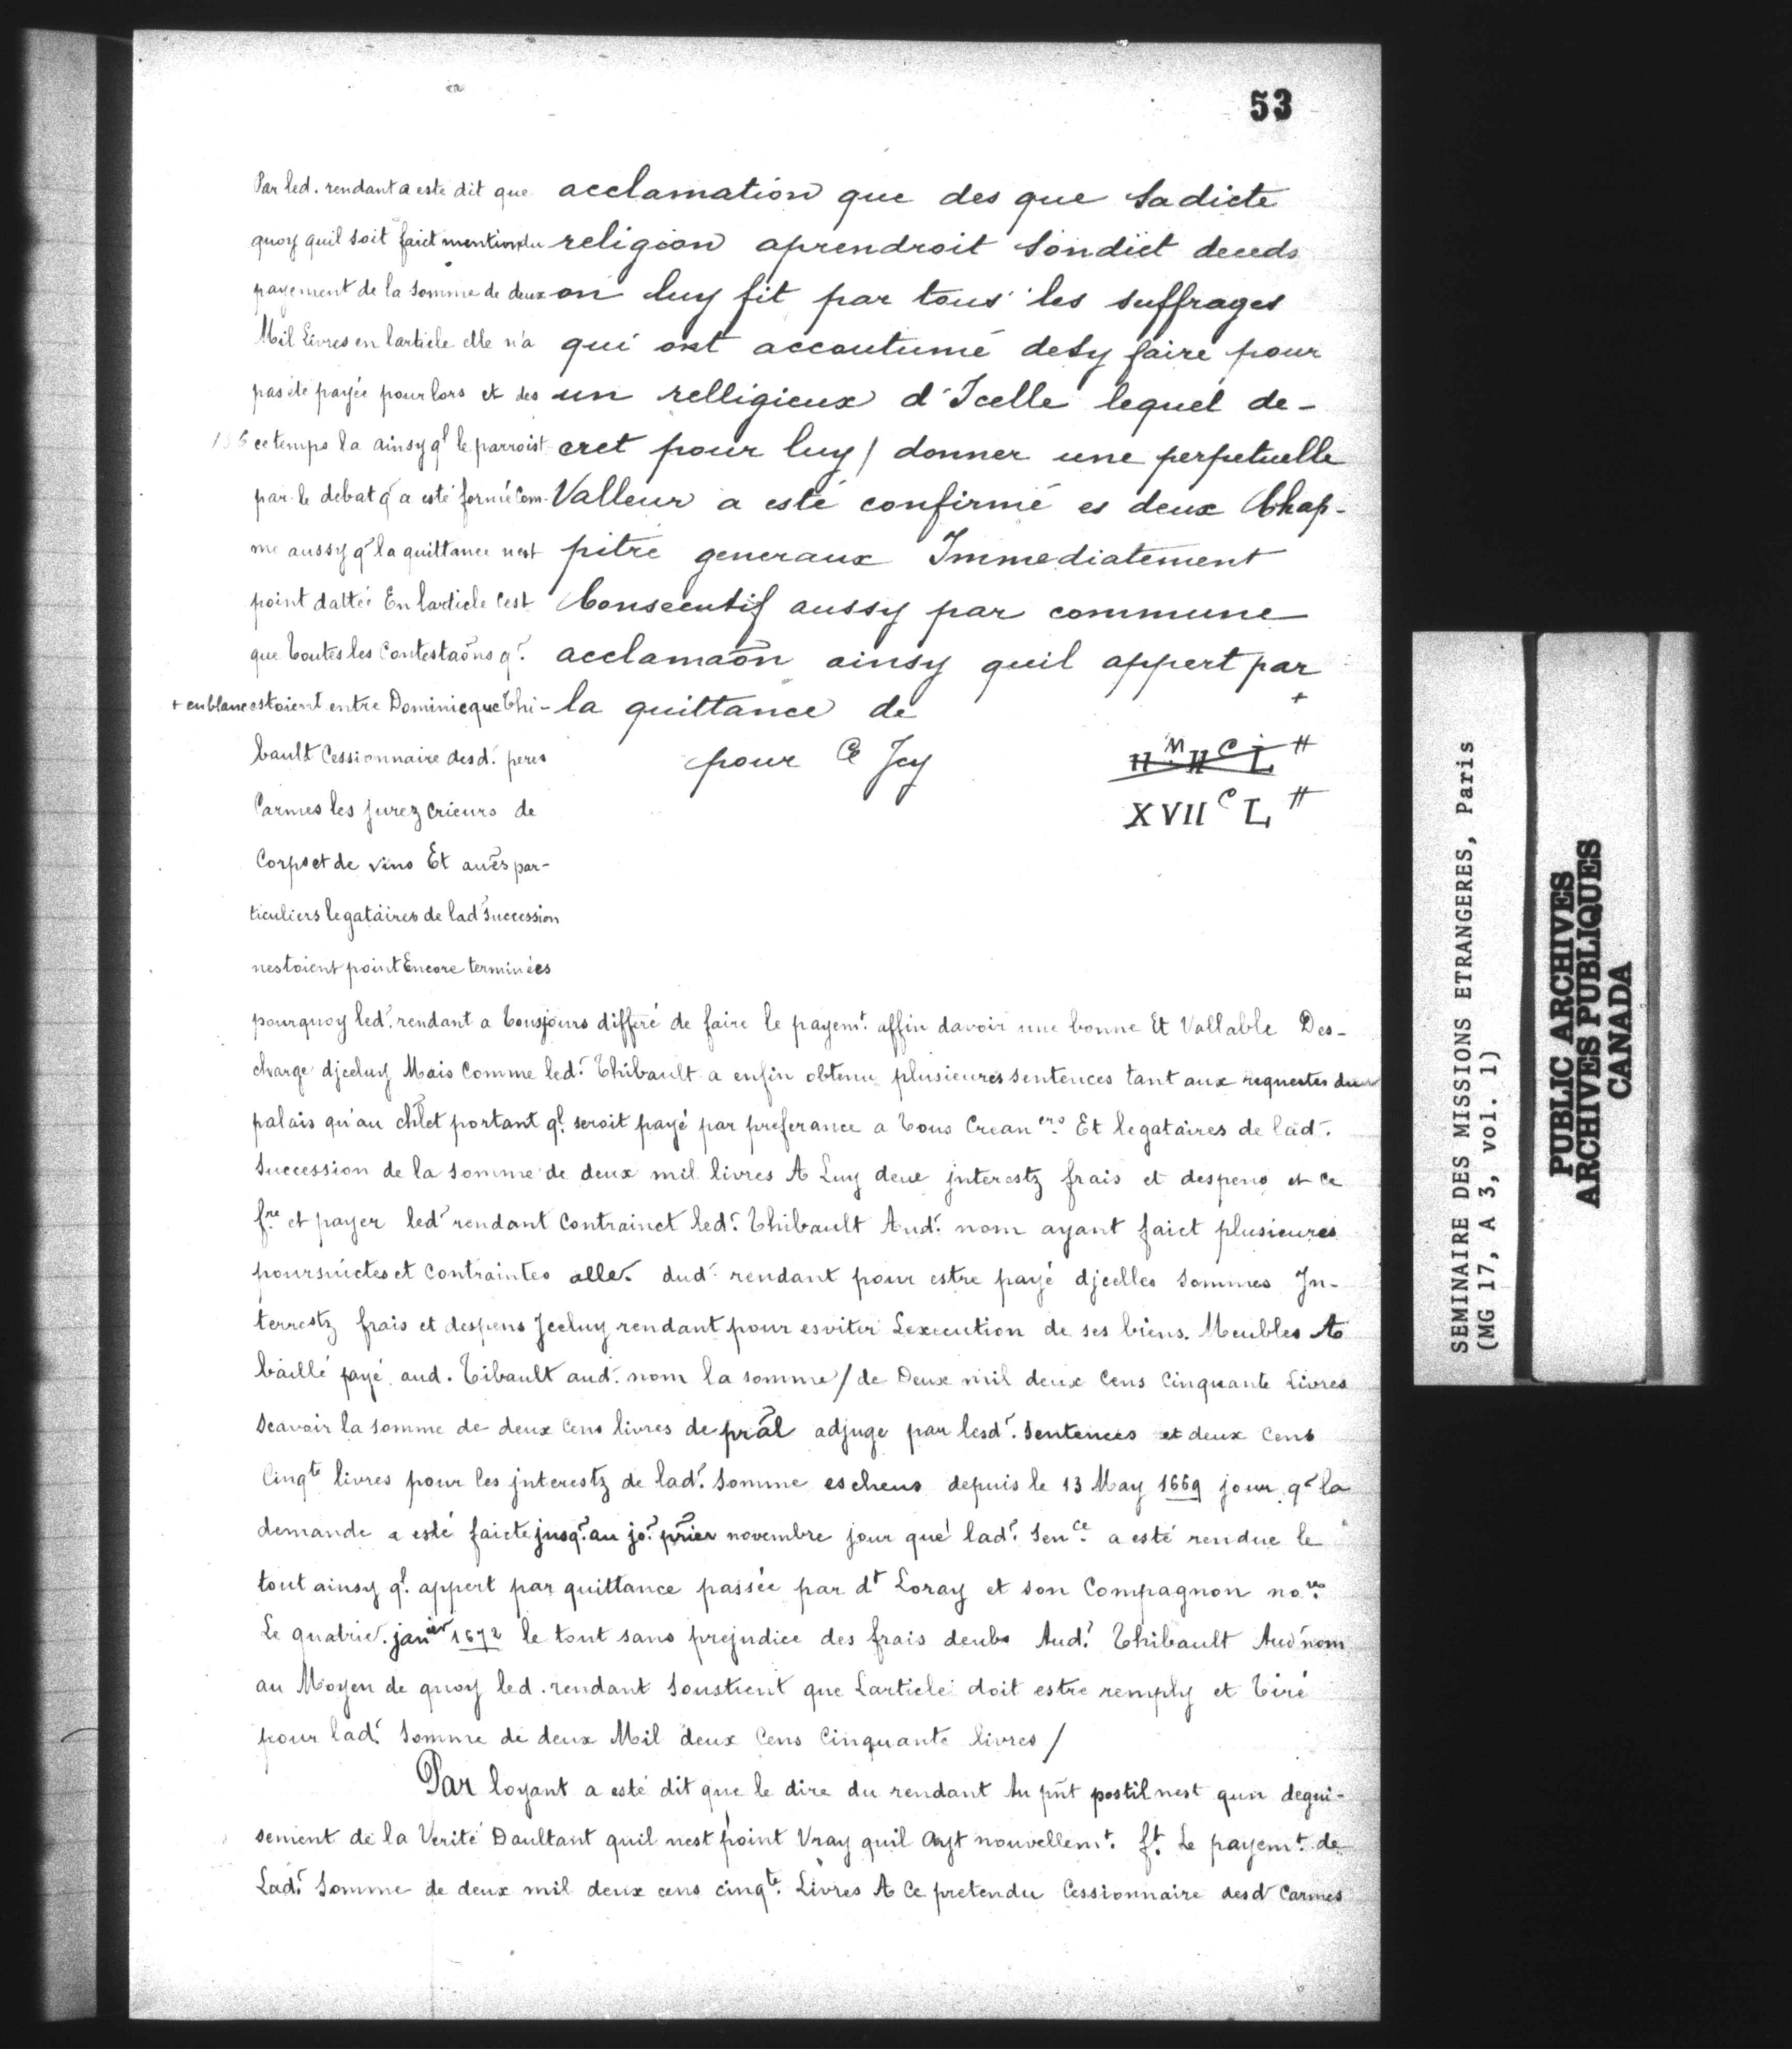 53
acclamation que des que Sadicte
religion aprendroit Sondict deceds
on luy fit par tous les suffrages
qui ont accoutumé desy faire pour
un relligieux d'Icelle lequel de-
cret pour luy / donner une perpetuelle
Valleur a esté confirmé es deux Chap-
pitre generaux Immediatement
Consecutif aussy par commune
acclamaõn ainsy quil appert par
la quittance de +
pour Ce Jcy
IIᴹ IIᶜ L ᵗᵗ
XVIIᶜ L ᵗᵗ
Par led. rendant a este dit que
quoy quil soit faict mention du
payement de la Somme de deux
Mil Livres en larticle elle n'a
pas été payée pour lors et des
ce temps la ainsy qˡ le parroist
par le debat q̃ a esté formé Com-
me aussy q̃ la quittance nest
point dattée En larticle Cest
que toutes les Contestaõns qʳ.
+ en blanc
estoient entre Dominicque Thi-
bault Cessionnaire desd. peres
Carmes les jurez crieurs de
Corps et de vins Et auẽs par-
ticuliers legataires de lad Succession
nestoient point Encore terminées
pourquoy led. rendant a tousjours differé de faire le payemᵗ. affin davoir une bonne Et Vallable Des-
charge djceluy Mais Comme led. Thibault a enfin obtenu plusieures sentences tant aux requestes du
palais qu'au chlet portant qˡ. seroit payé par preferance a tous Creanᵉʳˢ Et legataires de lad.
Succession de la Somme de deux mil livres A Luy deue jnterestz frais et despens et ce
fʳᵉ et payer led rendant Contrainct led. Thibault Aud. nom ayant faict plusieures
poursuictes et Contraintes alle. dud rendant pour estre payé djcelles Sommes Jn-
terrestz frais et despens Jceluy rendant pour esviter Lexecution de ses biens. Meubles A
baillé payé aud. Tibault aud. nom la somme / de Deux mil deux Cens Cinquante Livres
Scavoir la Somme de deux Cens livres de prãl adjuge par lesd. Sentences et deux Cens
Cinqᵗᵉ livres pour les jnterestz de lad. Somme escheus depuis le 13 May 1669 jour qʳ la
demande a esté faicte jusq. au joʳ. pr̃ier novembre jour que lad. Senᶜᵉ. a esté rendue le
tout ainsy qˡ. appert par quittance passée par dᵗ Loray et son Compagnon noʳᵉˢ
Le quatrie. janᵛⁱᵉʳ 1672 le tout sans prejudice des frais deubs Aud. Thibault Aud nom
au Moyen de quoy led. rendant Soustient que Larticle doit estre remply et Tiré
pour lad. Somme de deux Mil deux Cens Cinquante livres /
Par loyant a esté dit que le dire du rendant Au pñt postil nest qun degui-
sement de la Verité Daultant quil nest point Vray quil Ayt nouvellemᵗ. fᵗ. Le payemᵗ. de
Lad. Somme de deux mil deux cens cinqᵗᵉ. Livres A Ce pretendu Cessionnaire desd Carmes
SEMINAIRE DES MISSIONS ETRANGERES, Paris
(MG 17, A 3, vol. 1)
PUBLIC ARCHIVES
ARCHIVES PUBLIQUES
CANADA